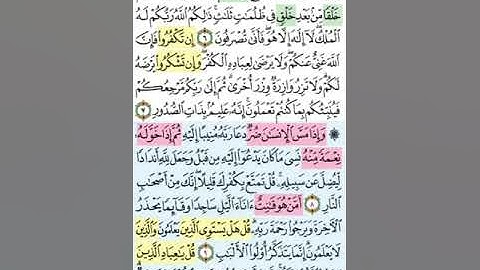 خَلْقًا مِّنۢ بَعْدِ خَلْقٍ فِي ظُلُمَٰتٍ ثَلَٰثٍ ۚ ذَٰلِكُمُ ٱللَّهُ رَبُّكُمْ لَهُ
ٱلْمُلْكُ ۖ لَآ إِلَٰهَ إِلَّا هُوَ ۖ فَأَنَّىٰ تُصْرَفُونَ ٦ إِن تَكْفُرُوا۟ فَإِنَّ
ٱللَّهَ غَنِيٌّ عَنكُمْ ۖ وَلَا يَرْضَىٰ لِعِبَادِهِ ٱلْكُفْرَ ۖ وَإِن تَشْكُرُوا۟ يَرْضَهُ
لَكُمْ ۗ وَلَا تَزِرُ وَازِرَةٌ وِزْرَ أُخْرَىٰ ۗ ثُمَّ إِلَىٰ رَبِّكُم مَّرْجِعُكُمْ
فَيُنَبِّئُكُم بِمَا كُنتُمْ تَعْمَلُونَ ۚ إِنَّهُۥ عَلِيمٌۢ بِذَاتِ ٱلصُّدُورِ ٧
۞ وَإِذَا مَسَّ ٱلْإِنسَٰنَ ضُرٌّ دَعَا رَبَّهُۥ مُنِيبًا إِلَيْهِ ثُمَّ إِذَا خَوَّلَهُۥ
نِعْمَةً مِّنْهُ نَسِيَ مَا كَانَ يَدْعُوٓا۟ إِلَيْهِ مِن قَبْلُ وَجَعَلَ لِلَّهِ أَندَادًا
لِّيُضِلَّ عَن سَبِيلِهِۦ ۚ قُلْ تَمَتَّعْ بِكُفْرِكَ قَلِيلًا ۖ إِنَّكَ مِنْ أَصْحَٰبِ
ٱلنَّارِ ٨ أَمَّنْ هُوَ قَٰنِتٌ ءَانَآءَ ٱلَّيْلِ سَاجِدًا وَقَآئِمًا يَحْذَرُ
ٱلْـَٔاخِرَةَ وَيَرْجُوا۟ رَحْمَةَ رَبِّهِۦ ۗ قُلْ هَلْ يَسْتَوِي ٱلَّذِينَ يَعْلَمُونَ وَٱلَّذِينَ
لَا يَعْلَمُونَ ۗ إِنَّمَا يَتَذَكَّرُ أُو۟لُوا۟ ٱلْأَلْبَٰبِ ٩ قُلْ يَٰعِبَادِ ٱلَّذِينَ